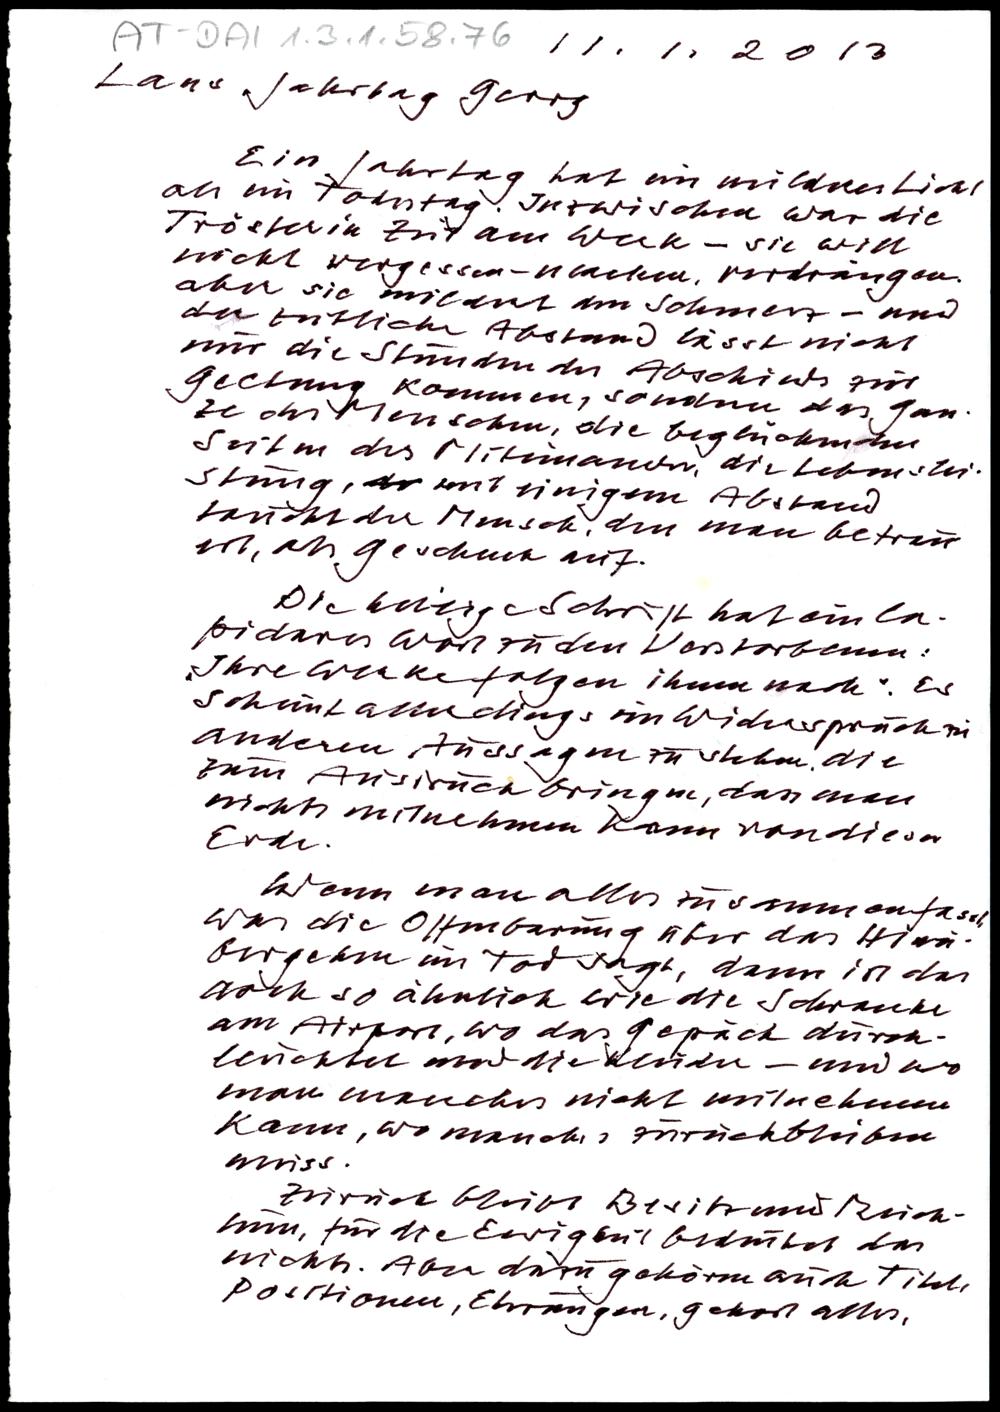 AT-DAI 1.3.1.58.76 11. 1. 2013
Lans Jahrtag Georg
Ein Jahrtag hat ein milderes Licht
als ein Todestag. Inzwischen war die
Trösterin Zeit am Werk – sie will
nicht vergessen-machen, verdrängen.
aber sie mildert den Schmerz – und
der zeitliche Abstand lässt nicht
nur die Stunden des Abschieds zur
Geltung kommen, sondern das Gan-
ze des Menschen, die beglückenden
Seiten des Miteinander, die Lebenslei-
stung, mit einigem Abstand
taucht der Mensch, den man betrau
ert, als Geschenk auf.
Die heilige Schrift hat ein la-
pidares Wort zu den Verstorbenen:
„Ihre Werke folgen ihnen nach". Es
scheint allerdings im Widerspruch zu
anderen Aussagen zu stehen, die
zum Ausdruck bringen, dass man
nichts mitnehmen kann von dieser
Erde.
Wenn man alles zusammenfasst,
was die Offenbarung über das Hinü-
bergehen im Tod sagt, dann ist das
doch so ähnlich wie die Schranke
am Airport, wo das Gepäck durch-
leuchtet und die Kleider – und wo
man manches nicht mitnehmen
kann, wo manches zurückbleiben
muss.
Zurück bleibt Besitz und Reich-
tum, für die Ewigkeit bedeutet das
nichts. Aber dazu gehören auch Titel,
Positionen, Ehrungen, gehört alles,